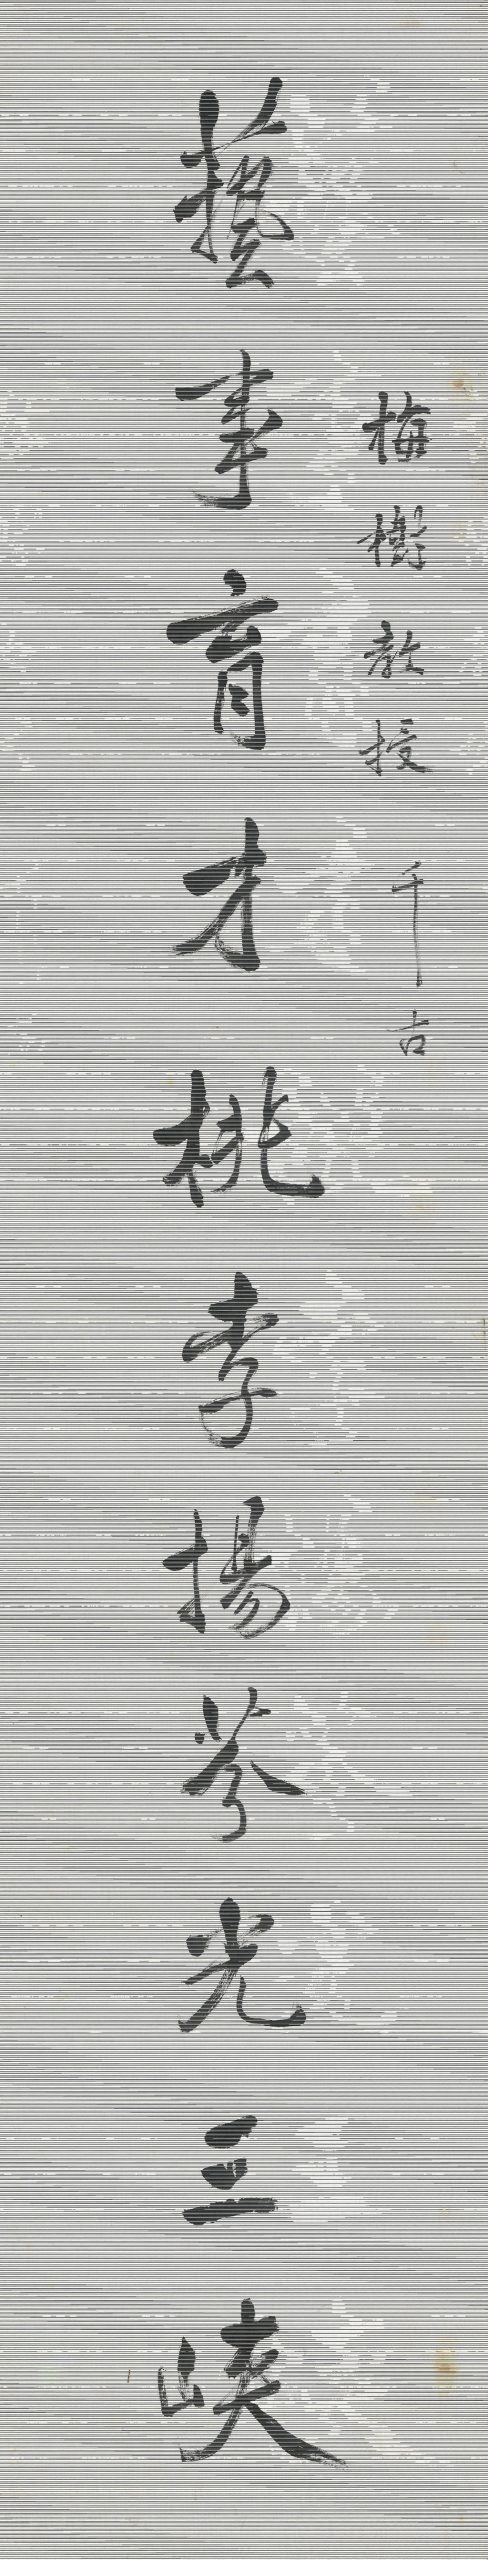 梅樹教授 千古
藝事育才桃李揚芬光三峽